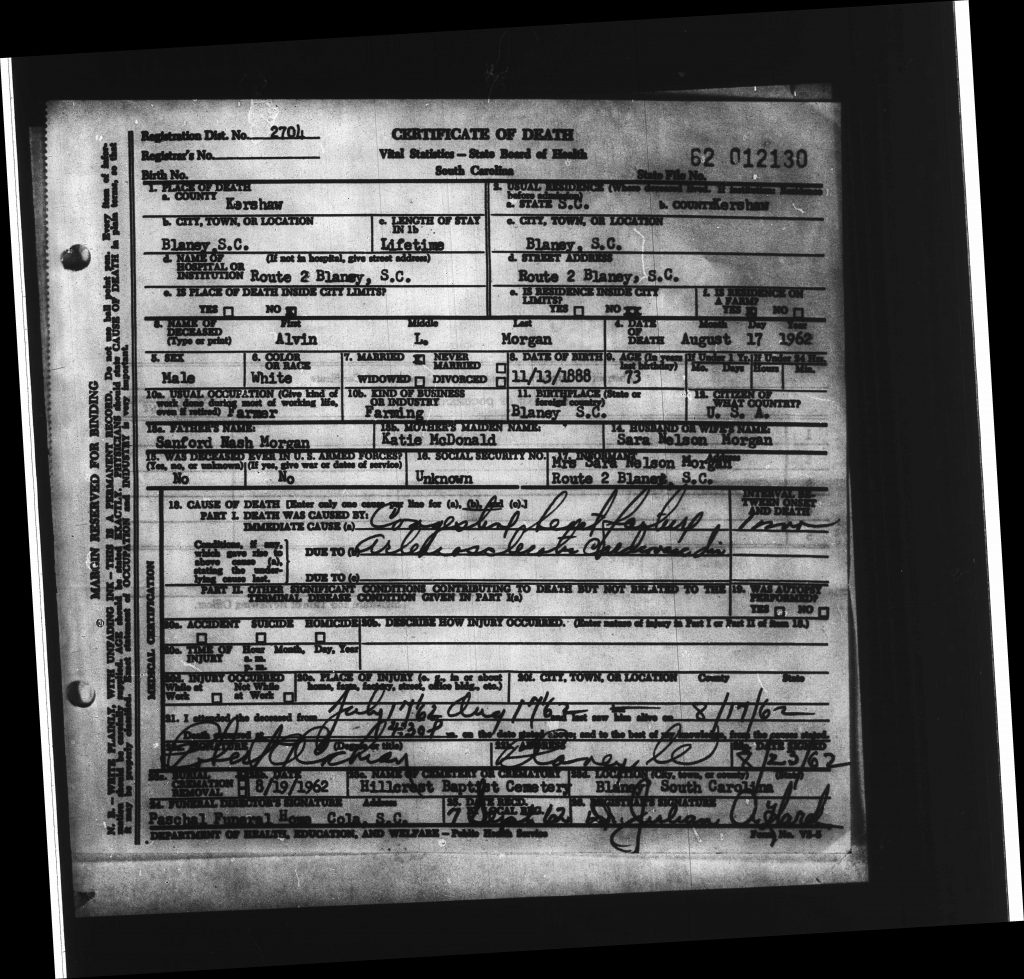 Registration Dist. No. 2704
CERTIFICATE OF DEATH
Registrar's No.
Vital Statistics — State Board of Health
62 012130
Birth No.
South Carolina
State File No.
1. PLACE OF DEATH
a. COUNTY
Kershaw
2. USUAL RESIDENCE (Where deceased lived. If institution: Residence before admission)
a. STATE S.C.
b. COUNTY Kershaw
b. CITY, TOWN, OR LOCATION
Blaney, S.C.
c. LENGTH OF STAY IN 1b
Lifetime
c. CITY, TOWN, OR LOCATION
Blaney, S.C.
d. NAME OF HOSPITAL OR INSTITUTION (If not in hospital, give street address)
Route 2 Blaney, S.C.
d. STREET ADDRESS
Route 2 Blaney, S.C.
e. IS PLACE OF DEATH INSIDE CITY LIMITS?
YES NO X
e. IS RESIDENCE INSIDE CITY LIMITS?
YES NO XX
f. IS RESIDENCE ON A FARM?
YES X NO
3. NAME OF DECEASED (Type or print)
First Middle Last
Alvin L. Morgan
4. DATE OF DEATH
Month Day Year
August 17 1962
5. SEX
Male
6. COLOR OR RACE
White
7. MARRIED X NEVER MARRIED
WIDOWED DIVORCED
8. DATE OF BIRTH
11/13/1888
9. AGE (In years last birthday)
73
If Under 1 Yr. If Under 24 Hrs.
Mo. Days Hours Min.
10a. USUAL OCCUPATION (Give kind of work done during most of working life, even if retired)
Farmer
10b. KIND OF BUSINESS OR INDUSTRY
Farming
11. BIRTHPLACE (State or foreign country)
Blaney S.C.
12. CITIZEN OF WHAT COUNTRY?
U. S. A.
13a. FATHER'S NAME:
Sanford Nash Morgan
13b. MOTHER'S MAIDEN NAME:
Katie McDonald
14. HUSBAND OR WIFE'S NAME:
Sara Nelson Morgan
15. WAS DECEASED EVER IN U. S. ARMED FORCES?
(Yes, no, or unknown) (If yes, give war or dates of service)
No No
16. SOCIAL SECURITY NO.
Unknown
17. INFORMANT Address
Mrs Sara Nelson Morgan
Route 2 Blaney, S.C.
MEDICAL CERTIFICATION
18. CAUSE OF DEATH [Enter only one cause per line for (a), (b), and (c).]
PART I. DEATH WAS CAUSED BY:
IMMEDIATE CAUSE (a) Congestive heart failure
INTERVAL BETWEEN ONSET AND DEATH
Conditions, if any, which gave rise to above cause (a), stating the underlying cause last.
DUE TO (b) Arteriosclerotic
DUE TO (c)
PART II. OTHER SIGNIFICANT CONDITIONS CONTRIBUTING TO DEATH BUT NOT RELATED TO THE TERMINAL DISEASE CONDITION GIVEN IN PART I(a)
19. WAS AUTOPSY PERFORMED?
YES NO
20a. ACCIDENT SUICIDE HOMICIDE
20b. DESCRIBE HOW INJURY OCCURRED. (Enter nature of injury in Part I or Part II of item 18.)
20c. TIME OF INJURY Hour Month, Day, Year
a. m.
p. m.
20d. INJURY OCCURRED
While at Work Not While at Work
20e. PLACE OF INJURY (e. g., in or about home, farm, factory, street, office bldg., etc.)
20f. CITY, TOWN, OR LOCATION County State
21. I attended the deceased from July 1962 Aug 17 62 and last saw him alive on 8/17/62
Death occurred at 4:30 P m. on the date stated above; and to the best of my knowledge, from the causes stated.
22a. SIGNATURE (Degree or title)
22b. ADDRESS
Blaney, SC
22c. DATE SIGNED
8/23/62
23a. BURIAL CREMATION REMOVAL
23b. DATE
8/19/1962
23c. NAME OF CEMETERY OR CREMATORY
Hillcrest Baptist Cemetery
23d. LOCATION (City, town, or county) (State)
Blaney South Carolina
24. FUNERAL DIRECTOR'S SIGNATURE Address
Paschal Funeral Home Cola, S.C.
25. DATE RECD. BY LOCAL REG.
7 Sept 62
26. REGISTRAR'S SIGNATURE
DEPARTMENT OF HEALTH, EDUCATION, AND WELFARE — Public Health Service
Form No. VS-5
MARGIN RESERVED FOR BINDING